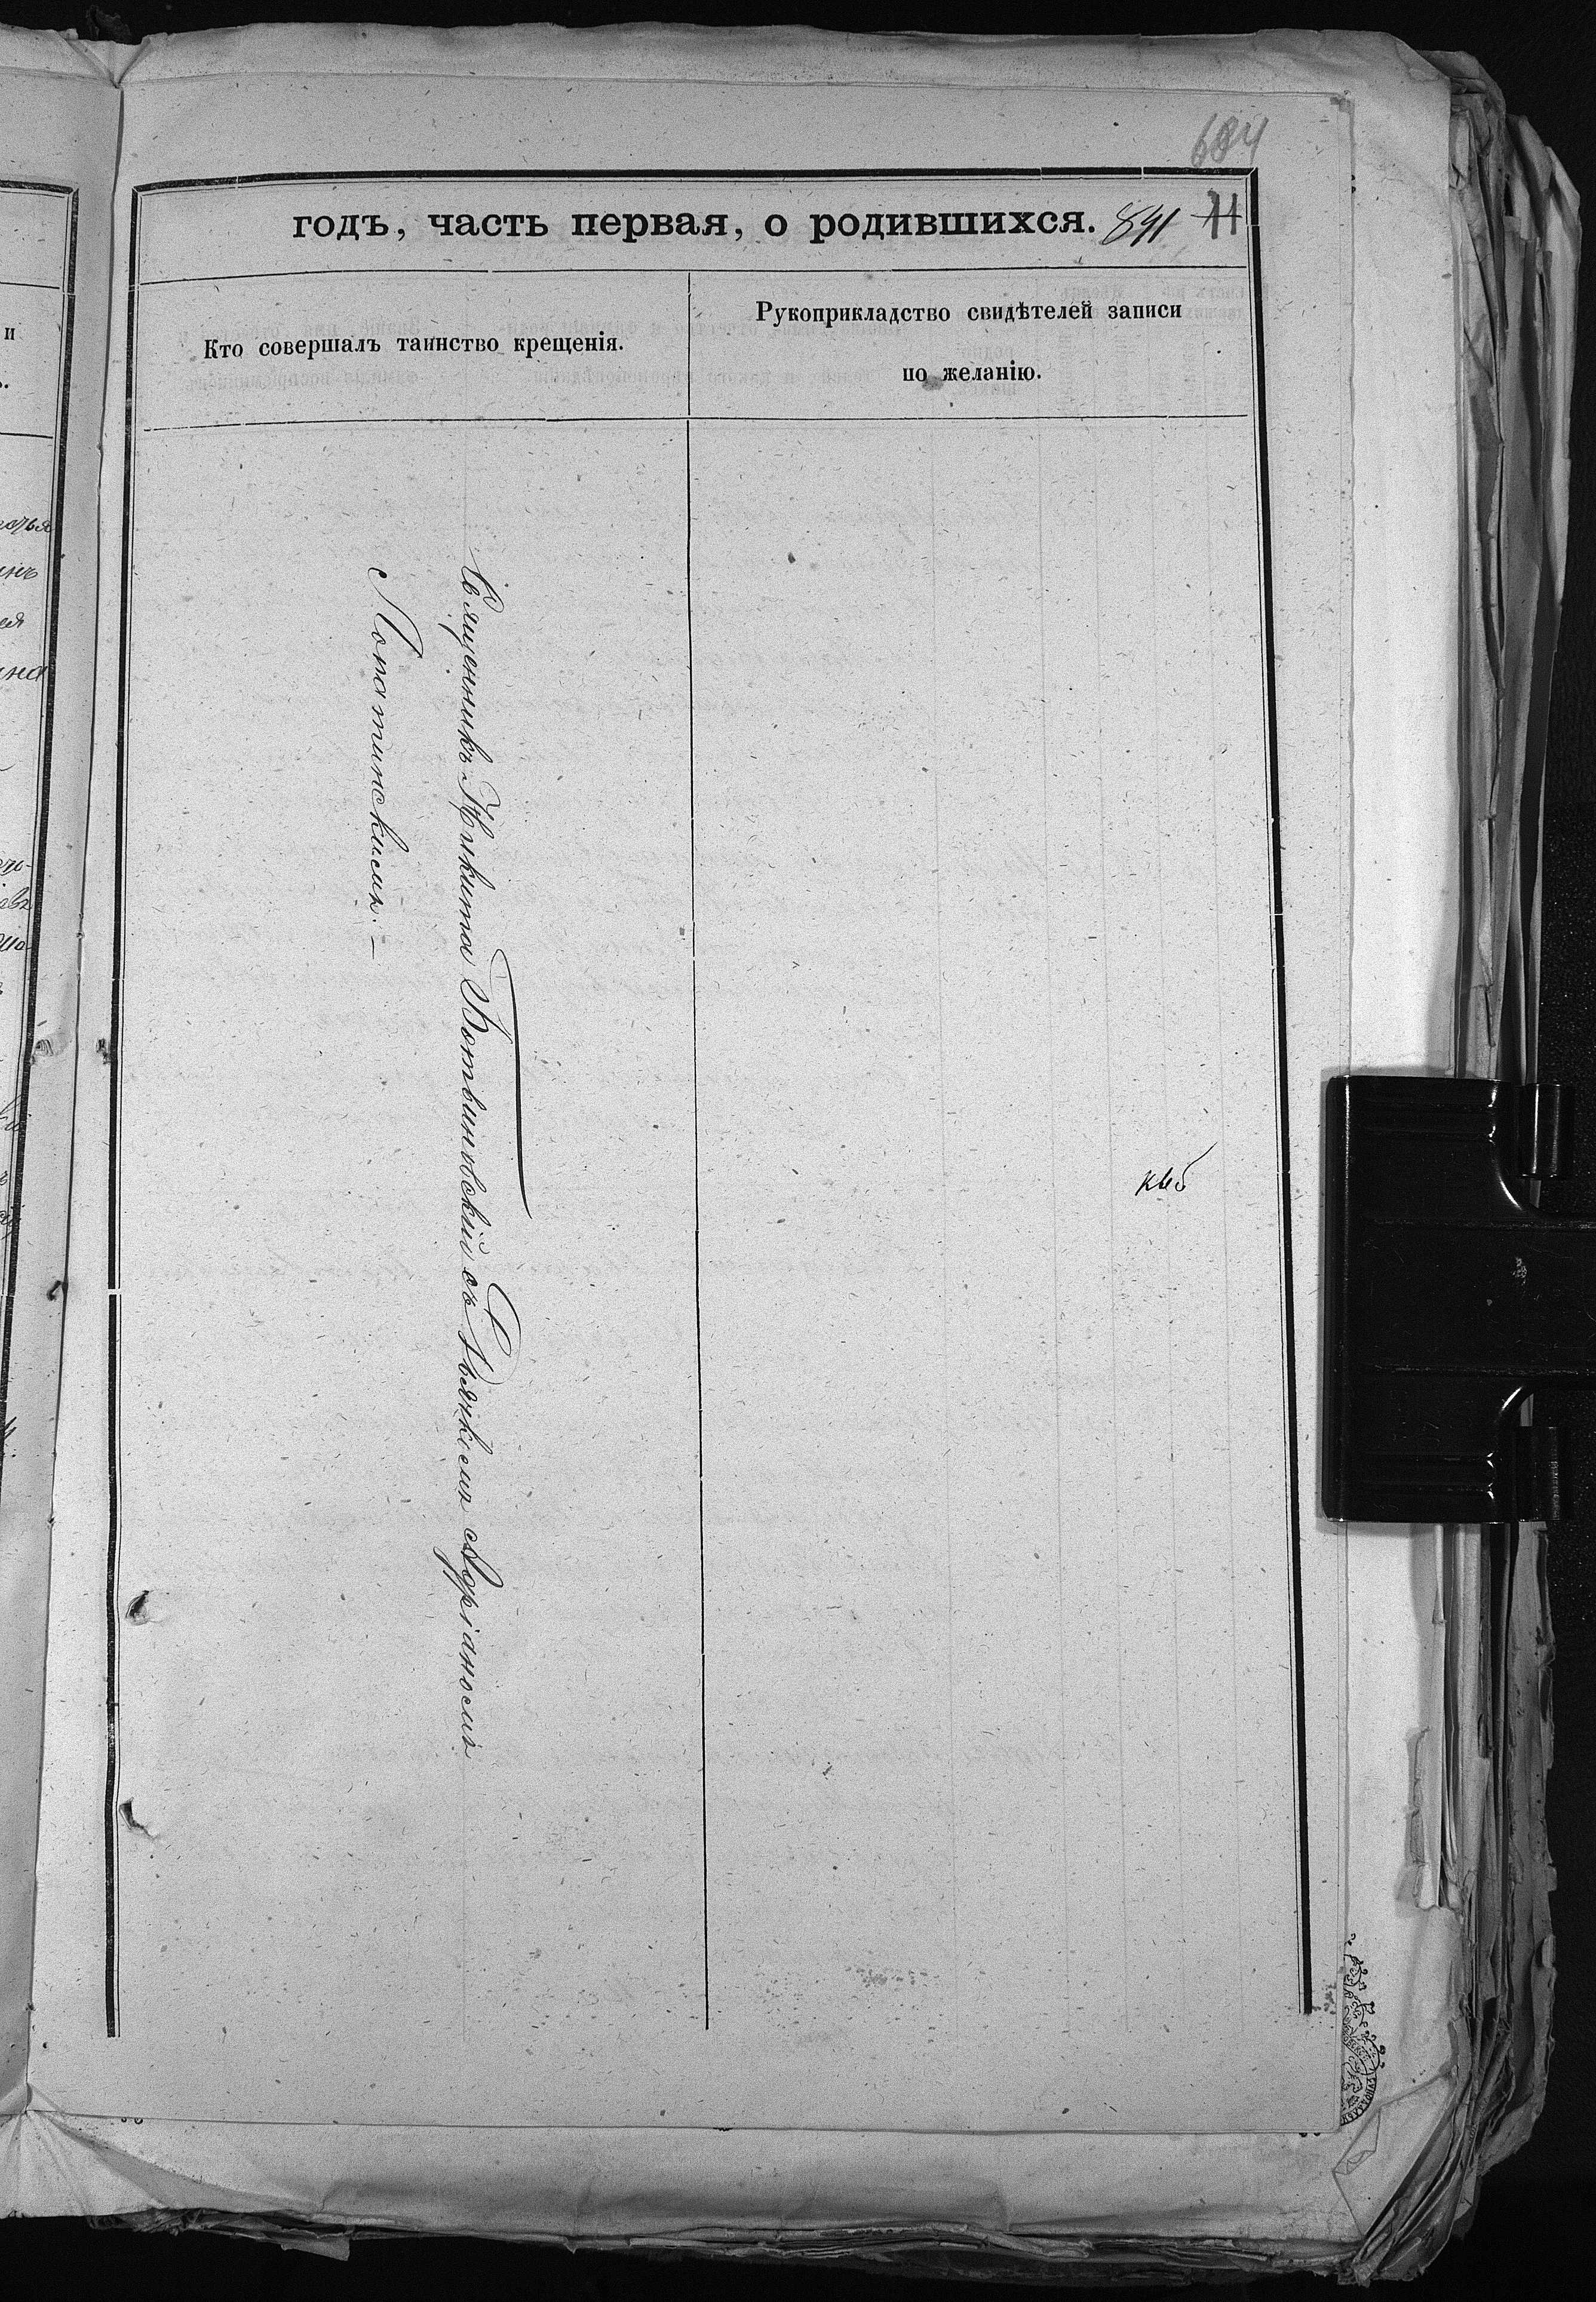 684
годъ, часть первая, о родившихся. 891 11
Кто совершалъ таинство крещенія.
Рукоприкладство свидѣтелей записи
по желанію.
Священникъ Никита Ботвиновскій съ Дьячкомъ Адріаномъ
Лопатинскимъ. —
и
на